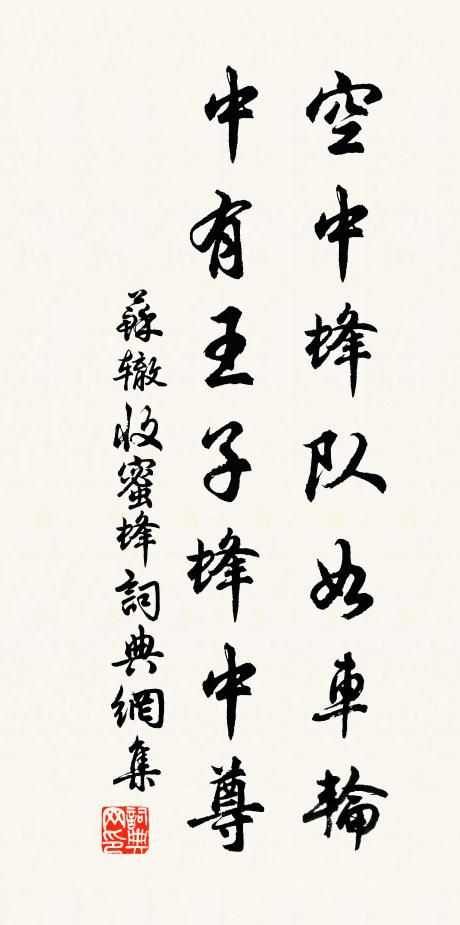 空中蜂队如車輪
中有王子蜂中尊
蘇辙收蜜蜂詞典網集
詞典網印